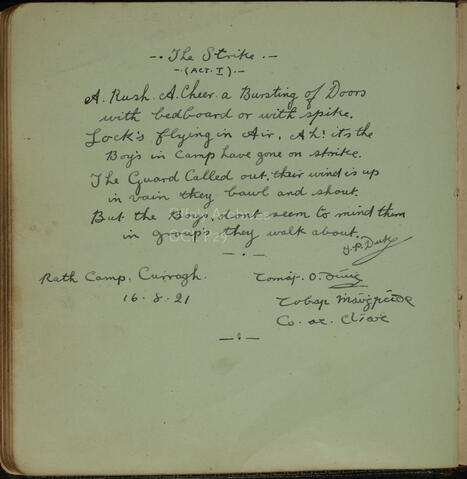 -. The Strike .-
-(ACT. I).-
A. Rush. A. Cheer. a Bursting of Doors
with bedboard or with spike.
Lock's flying in Air, Ah! its the
Boy's in Camp have gone on strike.
The Guard Called out, their wind is up
in vain they bawl and shout.
But the Boys, dont seem to mind them
in group's they walk about.
Rath Camp, Curragh.
16. 8. 21
Co. an